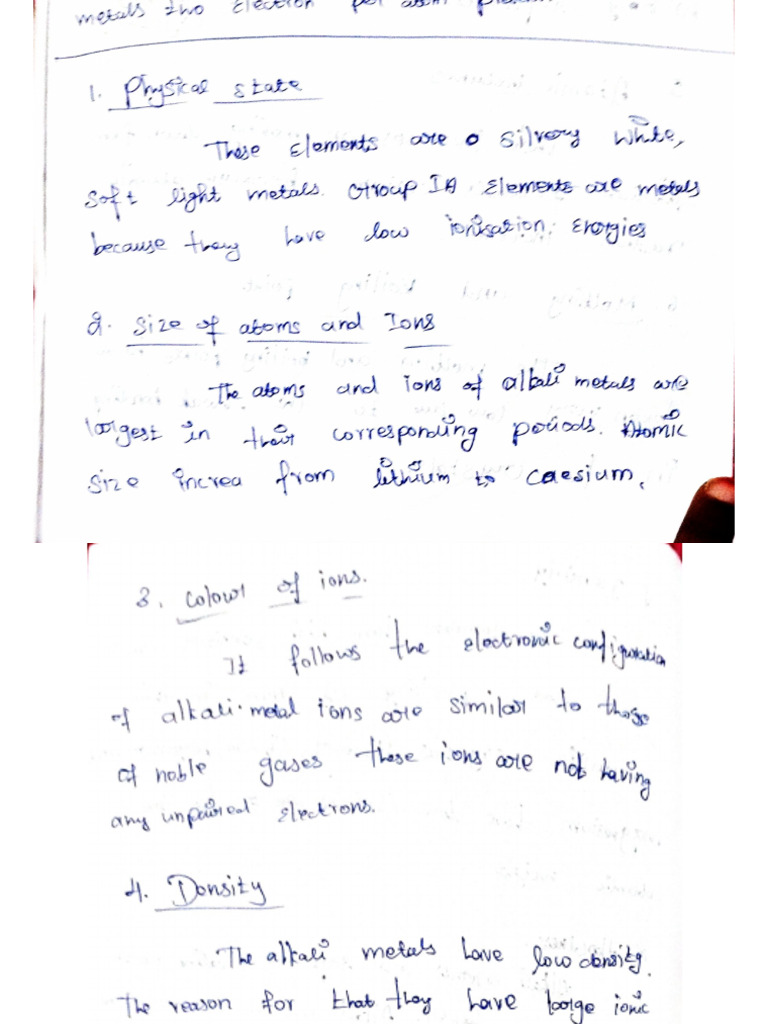 metals two Electron per atom
1. Physical state
These Elements are silvery white,
Soft light metals. Group IA Elements are metals
because they have low ionisation. Energies
2. Size of atoms and Ions
The atoms and ions of alkali metals are
largest in their corresponding periods. Atomic
size increa from lithium to caesium.
3. colour of ions.
It follows the electronic configuration
of alkali metal ions are similar to those
of noble gases these ions are not having
any unpaired Electrons.
4. Density
The alkali metals have low density.
The reason for that they have large ionic